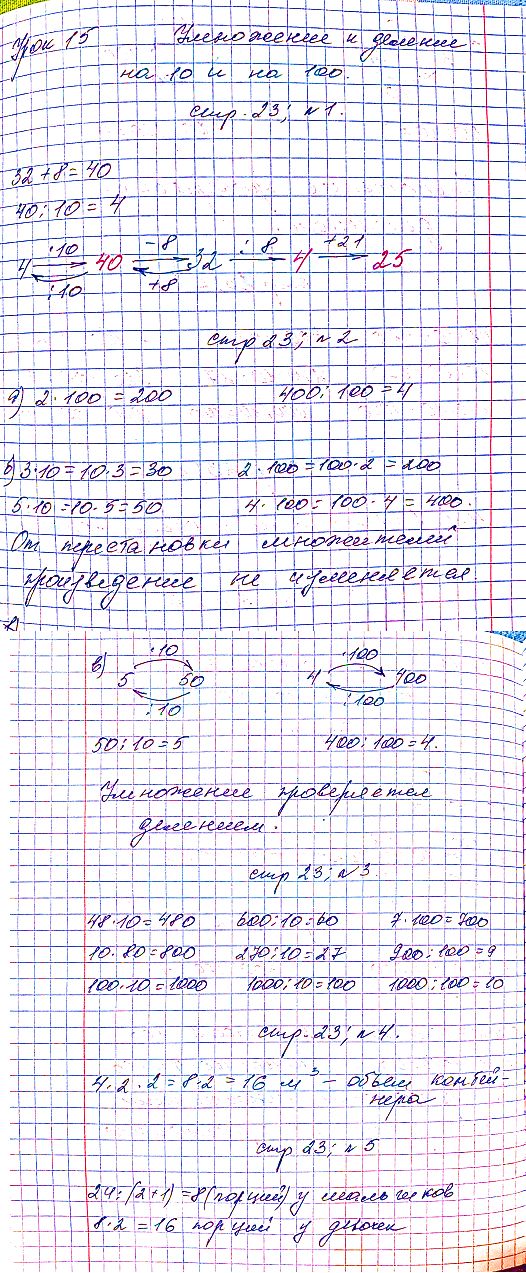 Урок 15 Умножение и деление
на 10 и на 100.
стр. 23; №1.
32 + 8 = 40
40 : 10 = 4
·10 -8 : 8 +21
4 40 32 4 25
:10 +8
стр 23; №2
а) 2 · 100 = 200 400 : 100 = 4
б) 3·10 = 10·3 = 30 2·100 = 100·2 = 200
5·10 = 10·5 = 50 4·100 = 100·4 = 400.
От перестановки множителей
произведение не изменяется
в) ·10 ·100
5 50 4 400
:10 :100
50 : 10 = 5 400 : 100 = 4.
Умножение проверяется
делением.
стр 23; №3
48·10 = 480 600 : 10 = 60 7·100 = 700
10·80 = 800 270 : 10 = 27 900 : 100 = 9
100·10 = 1000 1000 : 10 = 100 1000 : 100 = 10
стр. 23; №4.
4·2·2 = 8·2 = 16 м³ – объем контей-
нера
стр 23; №5
24 : (2+1) = 8 (порций) у мальчиков
8·2 = 16 порций у девочек